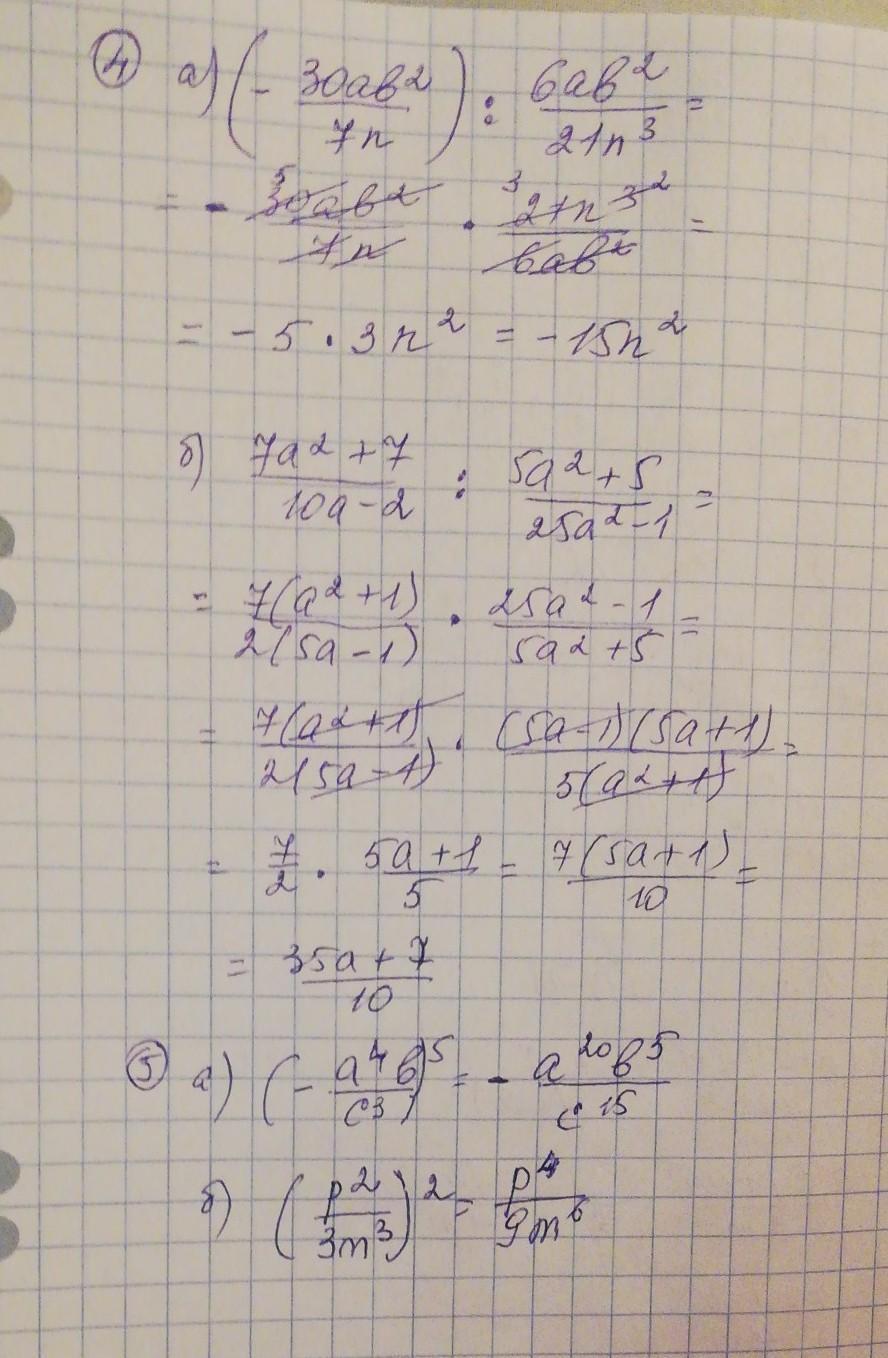 ④ а) (- 30ab²/7n) : 6ab²/21n³ =
= - 30ab²/7n · 21n³/6ab² =
= - 5 · 3n² = -15n²
б) 7a² + 7/10a - 2 : 5a² + 5/25a² - 1 =
= 7(a² + 1)/2(5a - 1) · 25a² - 1/5a² + 5 =
= 7(a² + 1)/2(5a - 1) · (5a - 1)(5a + 1)/5(a² + 1) =
= 7/2 · 5a + 1/5 = 7(5a + 1)/10 =
= 35a + 7/10
⑤ а) (- a⁴b/c³)⁵ = - a²⁰b⁵/c¹⁵
б) (p²/3m³)² = p⁴/9m⁶